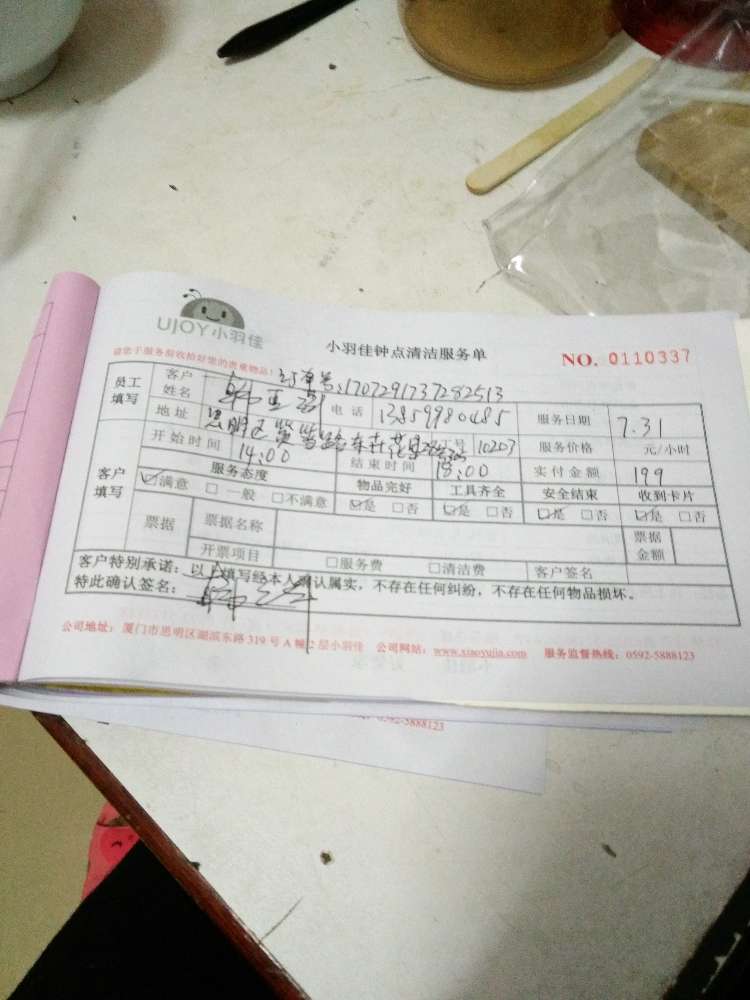 UJOY小羽佳
小羽佳钟点清洁服务单
NO. 0110337
请您于服务前收拾好您的贵重物品!
订单号:1707291737282513
员工填写 客户姓名 电话 13859980485 服务日期 7.31
地址 思明区 10203 服务价格 元/小时
客户填写 开始时间 14:00 结束时间 18:00 实付金额 199
服务态度 物品完好 工具齐全 安全结束 收到卡片
☑满意 □一般 □不满意 ☑是 □否 ☑是 □否 ☑是 □否 ☑是 □否
票据 票据名称 票据金额
开票项目 □服务费 □清洁费 客户签名
客户特别承诺:以上填写经本人确认属实,不存在任何纠纷,不存在任何物品损坏。
特此确认签名:
公司地址:厦门市思明区湖滨东路319号A幢2层小羽佳 公司网站:www.xiaoyujia.com 服务监督热线:0592-5888123
0592-5888123